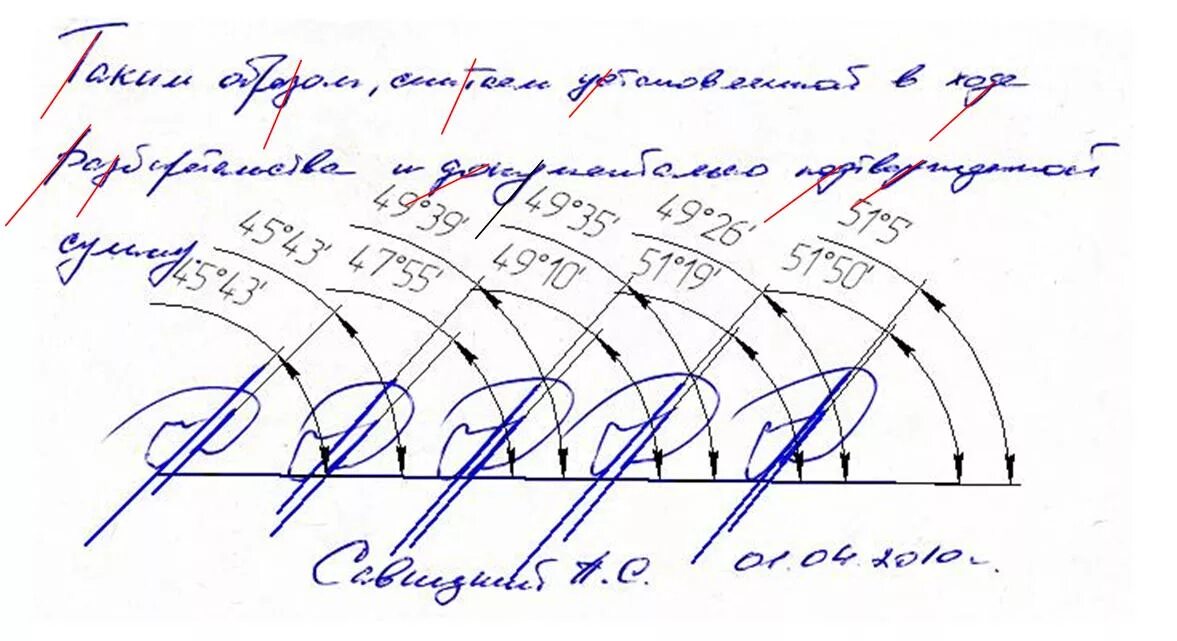 Таким образом, считаем установленной в ходе
разбирательства и документально подтвержденной
сумму
49°39' 49°35' 49°26' 51°5'
45°43' 47°55' 49°10' 51°19' 51°50'
45°43'
Савицкий А.С. 01.04.2010г.